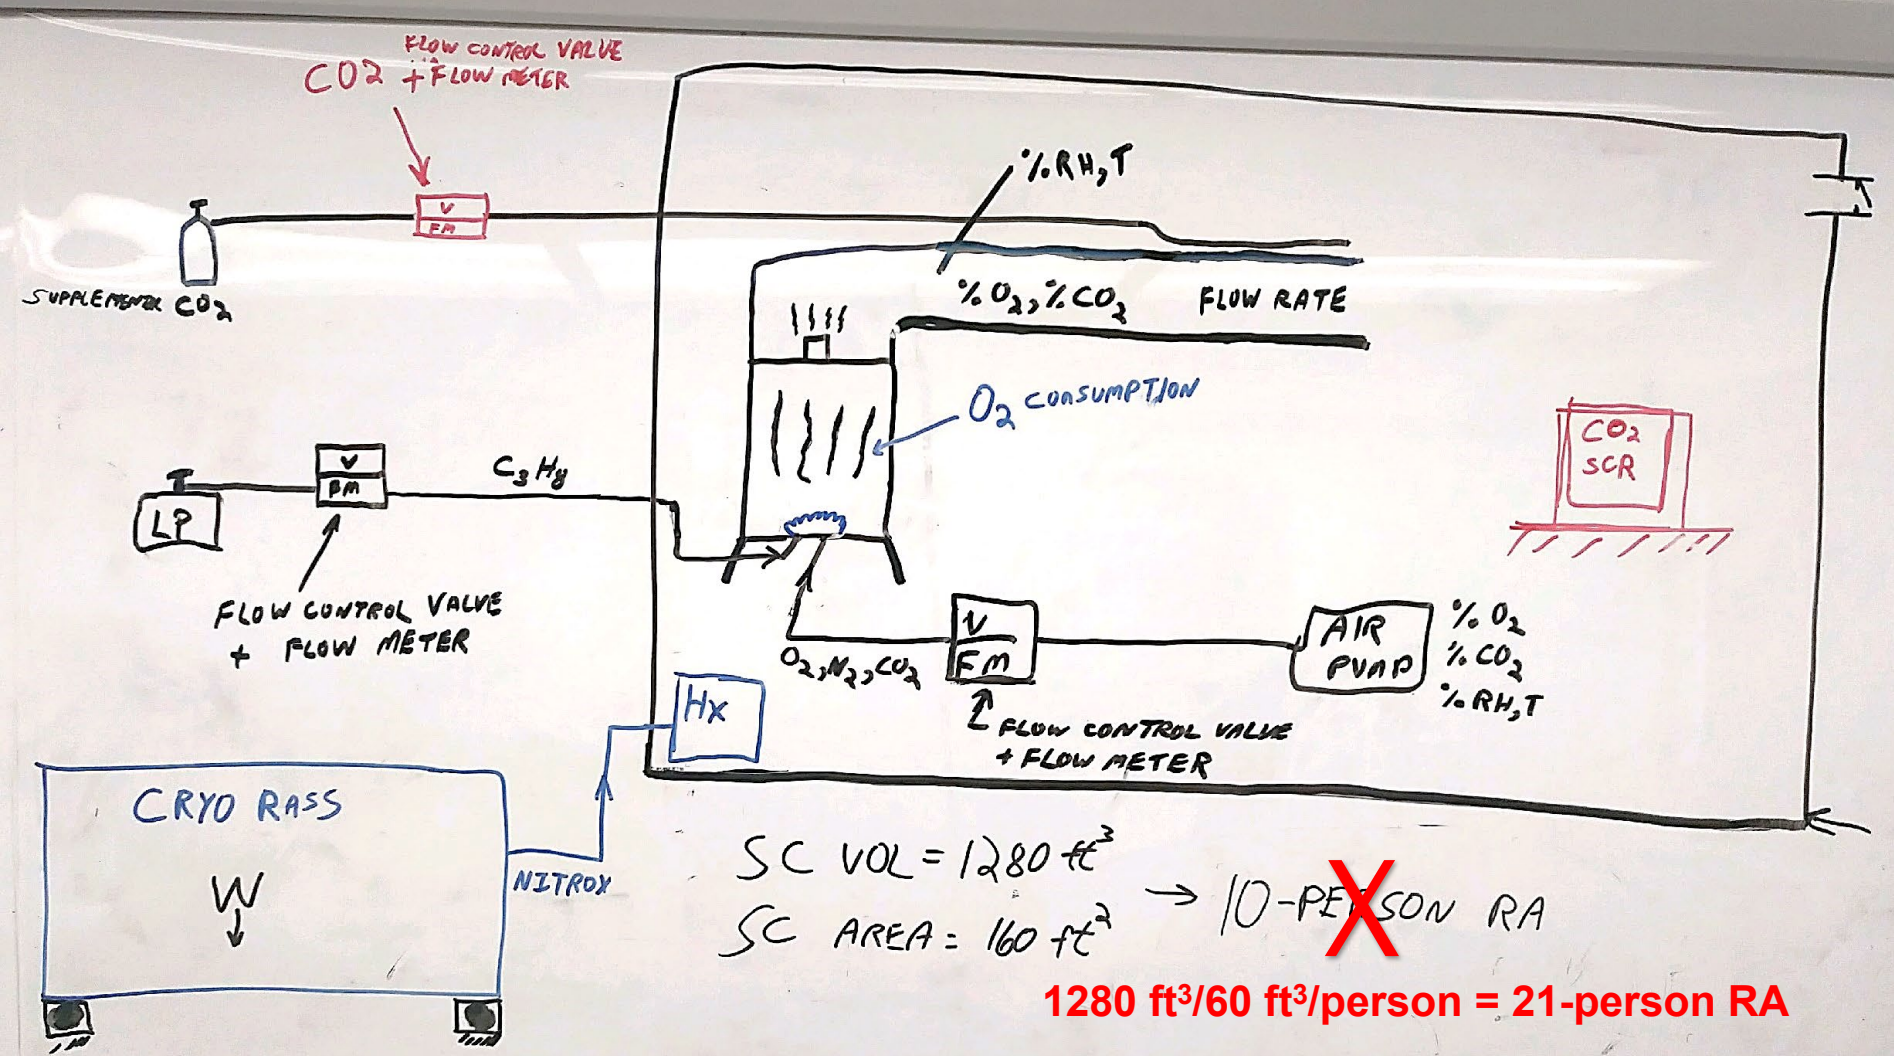 FLOW CONTROL VALVE
CO2 + FLOW METER
%RH,T
V
FM
SUPPLEMENTAL CO2
%O2,%CO2 FLOW RATE
O2 CONSUMPTION
CO2
SCR
V
FM
C3H8
LP
FLOW CONTROL VALVE
+ FLOW METER
V
FM
AIR
PUMP
% O2
% CO2
%RH,T
O2,N2,CO2
FLOW CONTROL VALVE
+ FLOW METER
Hx
CRYO RASS
W
NITROX
SC VOL = 1280 ft³
SC AREA = 160 ft²
→ 10-PERSON RA
X
1280 ft³/60 ft³/person = 21-person RA